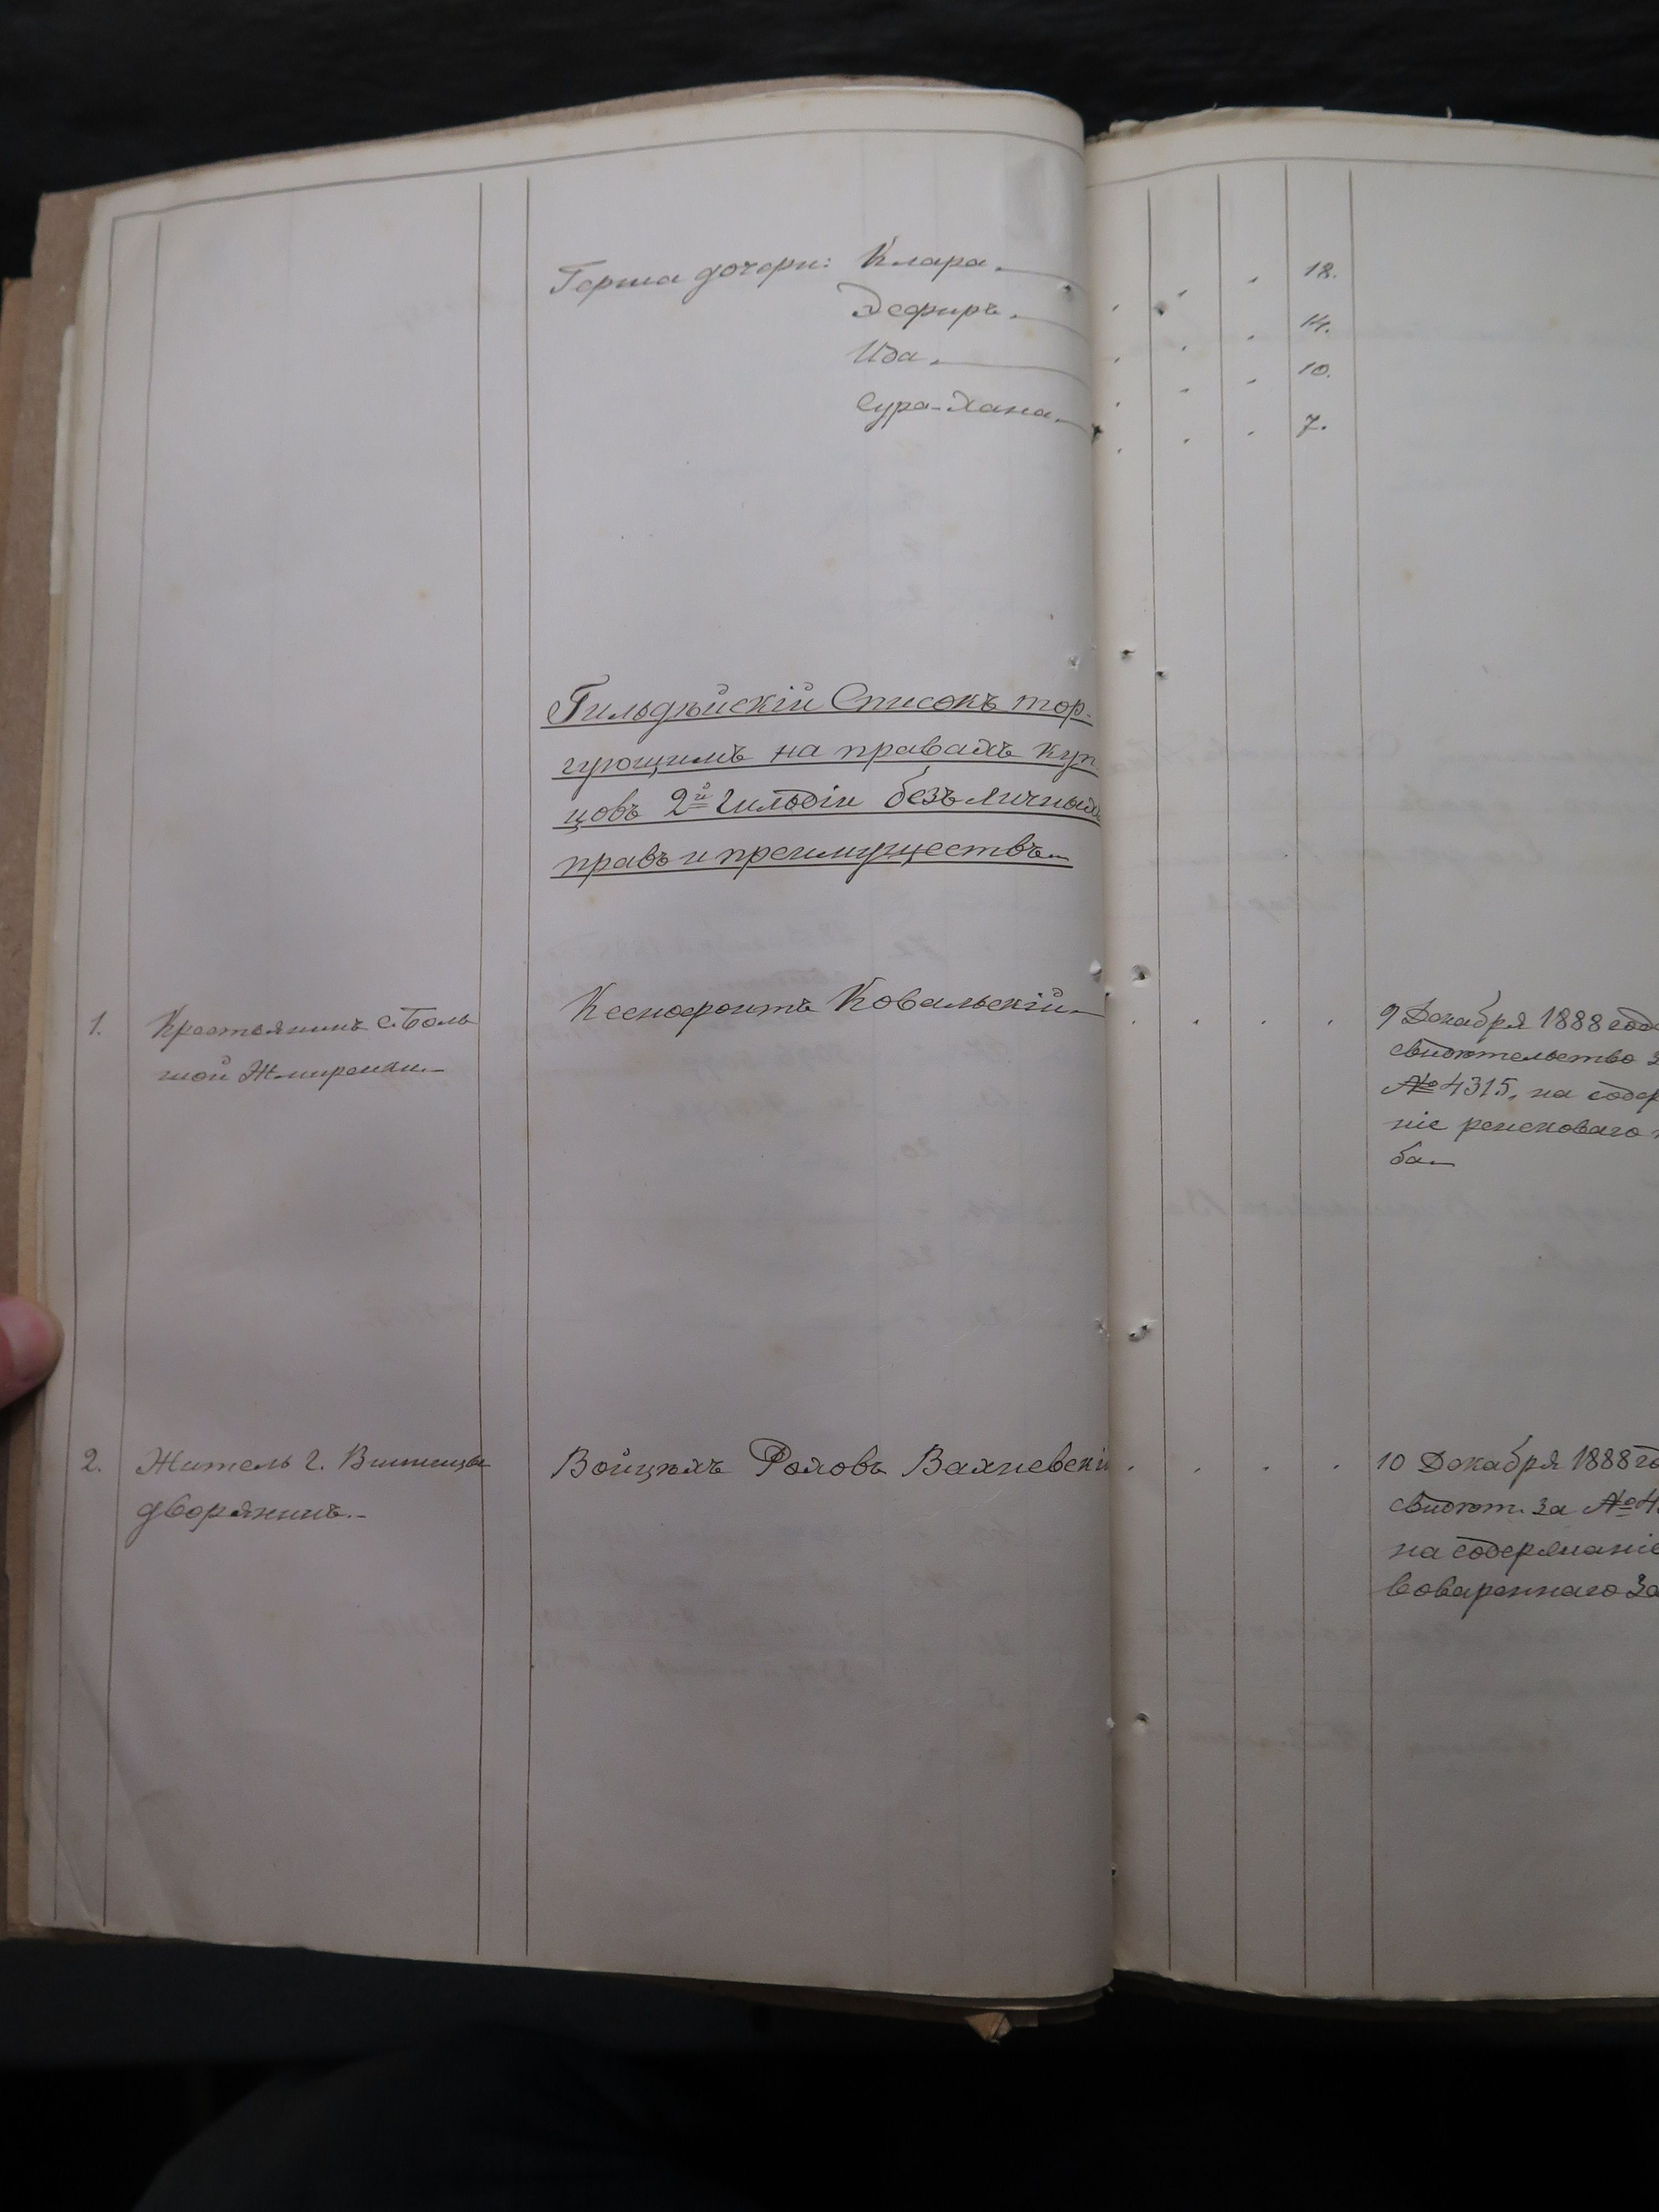 Герша дочери: Клара. 18.
Эсфирь. 14.
Ида. 10.
Сура-Хана. 7.
Гильдѣйскій Списокъ тор-
гующимъ на правахъ куп
цовъ 2й Гильдіи безъ личныхъ
правъ и преимуществъ.
1. Крестьянинъ с. Боль Ксенофонтъ Ковальскій 9 Декабря 1888 год
шой Жмеренки. свидѣтельство з
№ 4315, на содер
ніе ренсковаго п
ба
2. Житель г. Винницы Войцѣхъ Рохов Вахневскі 10 Декабря 1888 го
дворянинъ. свидѣт. за № 4
на содержаніе
вовареннаго за